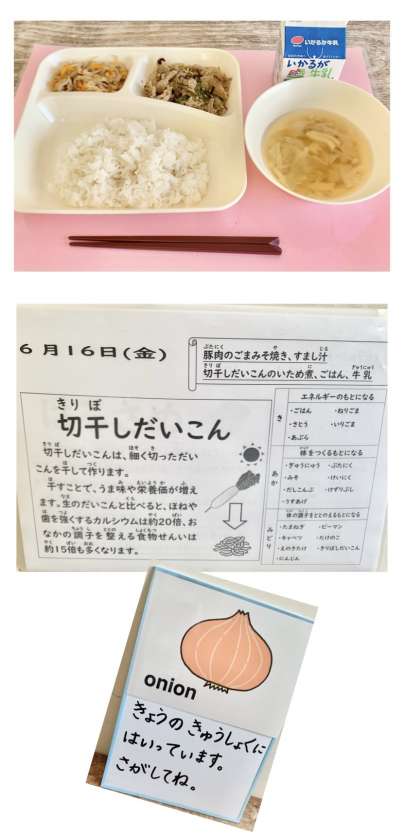 いかるが牛乳
いかるが
牛乳
6月16日(金)
豚肉のごまみそ焼き、すまし汁
切干しだいこんのいため煮、ごはん、牛乳
切干しだいこん
切干しだいこんは、細く切っただい
こんを干して作ります。
干すことで、うま味や栄養価が増え
ます。生のだいこんと比べると、ほねや
歯を強くするカルシウムは約20倍、お
なかの調子を整える食物せんいは
約15倍も多くなります。
き
エネルギーのもとになる
・ごはん ・ねりごま
・さとう ・いりごま
・あぶら
あか
体をつくるもとになる
・ぎゅうにゅう ・ぶたにく
・みそ ・けいにく
・だしこんぶ ・けずりぶし
・うすあげ
みどり
体の調子をととのえるもとになる
・たまねぎ ・ピーマン
・キャベツ ・たけのこ
・えのきたけ ・きりぼしだいこん
・にんじん
onion
きょうの きゅうしょくに
はいっています。
さがしてね。